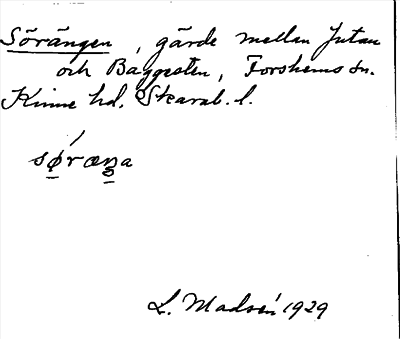 Sörängen, gärde mellan Jutan
och Baggesten, Forshems sn.
Kinne hd. Skarab. l.
sø´ræŋa
L. Madsén 1929